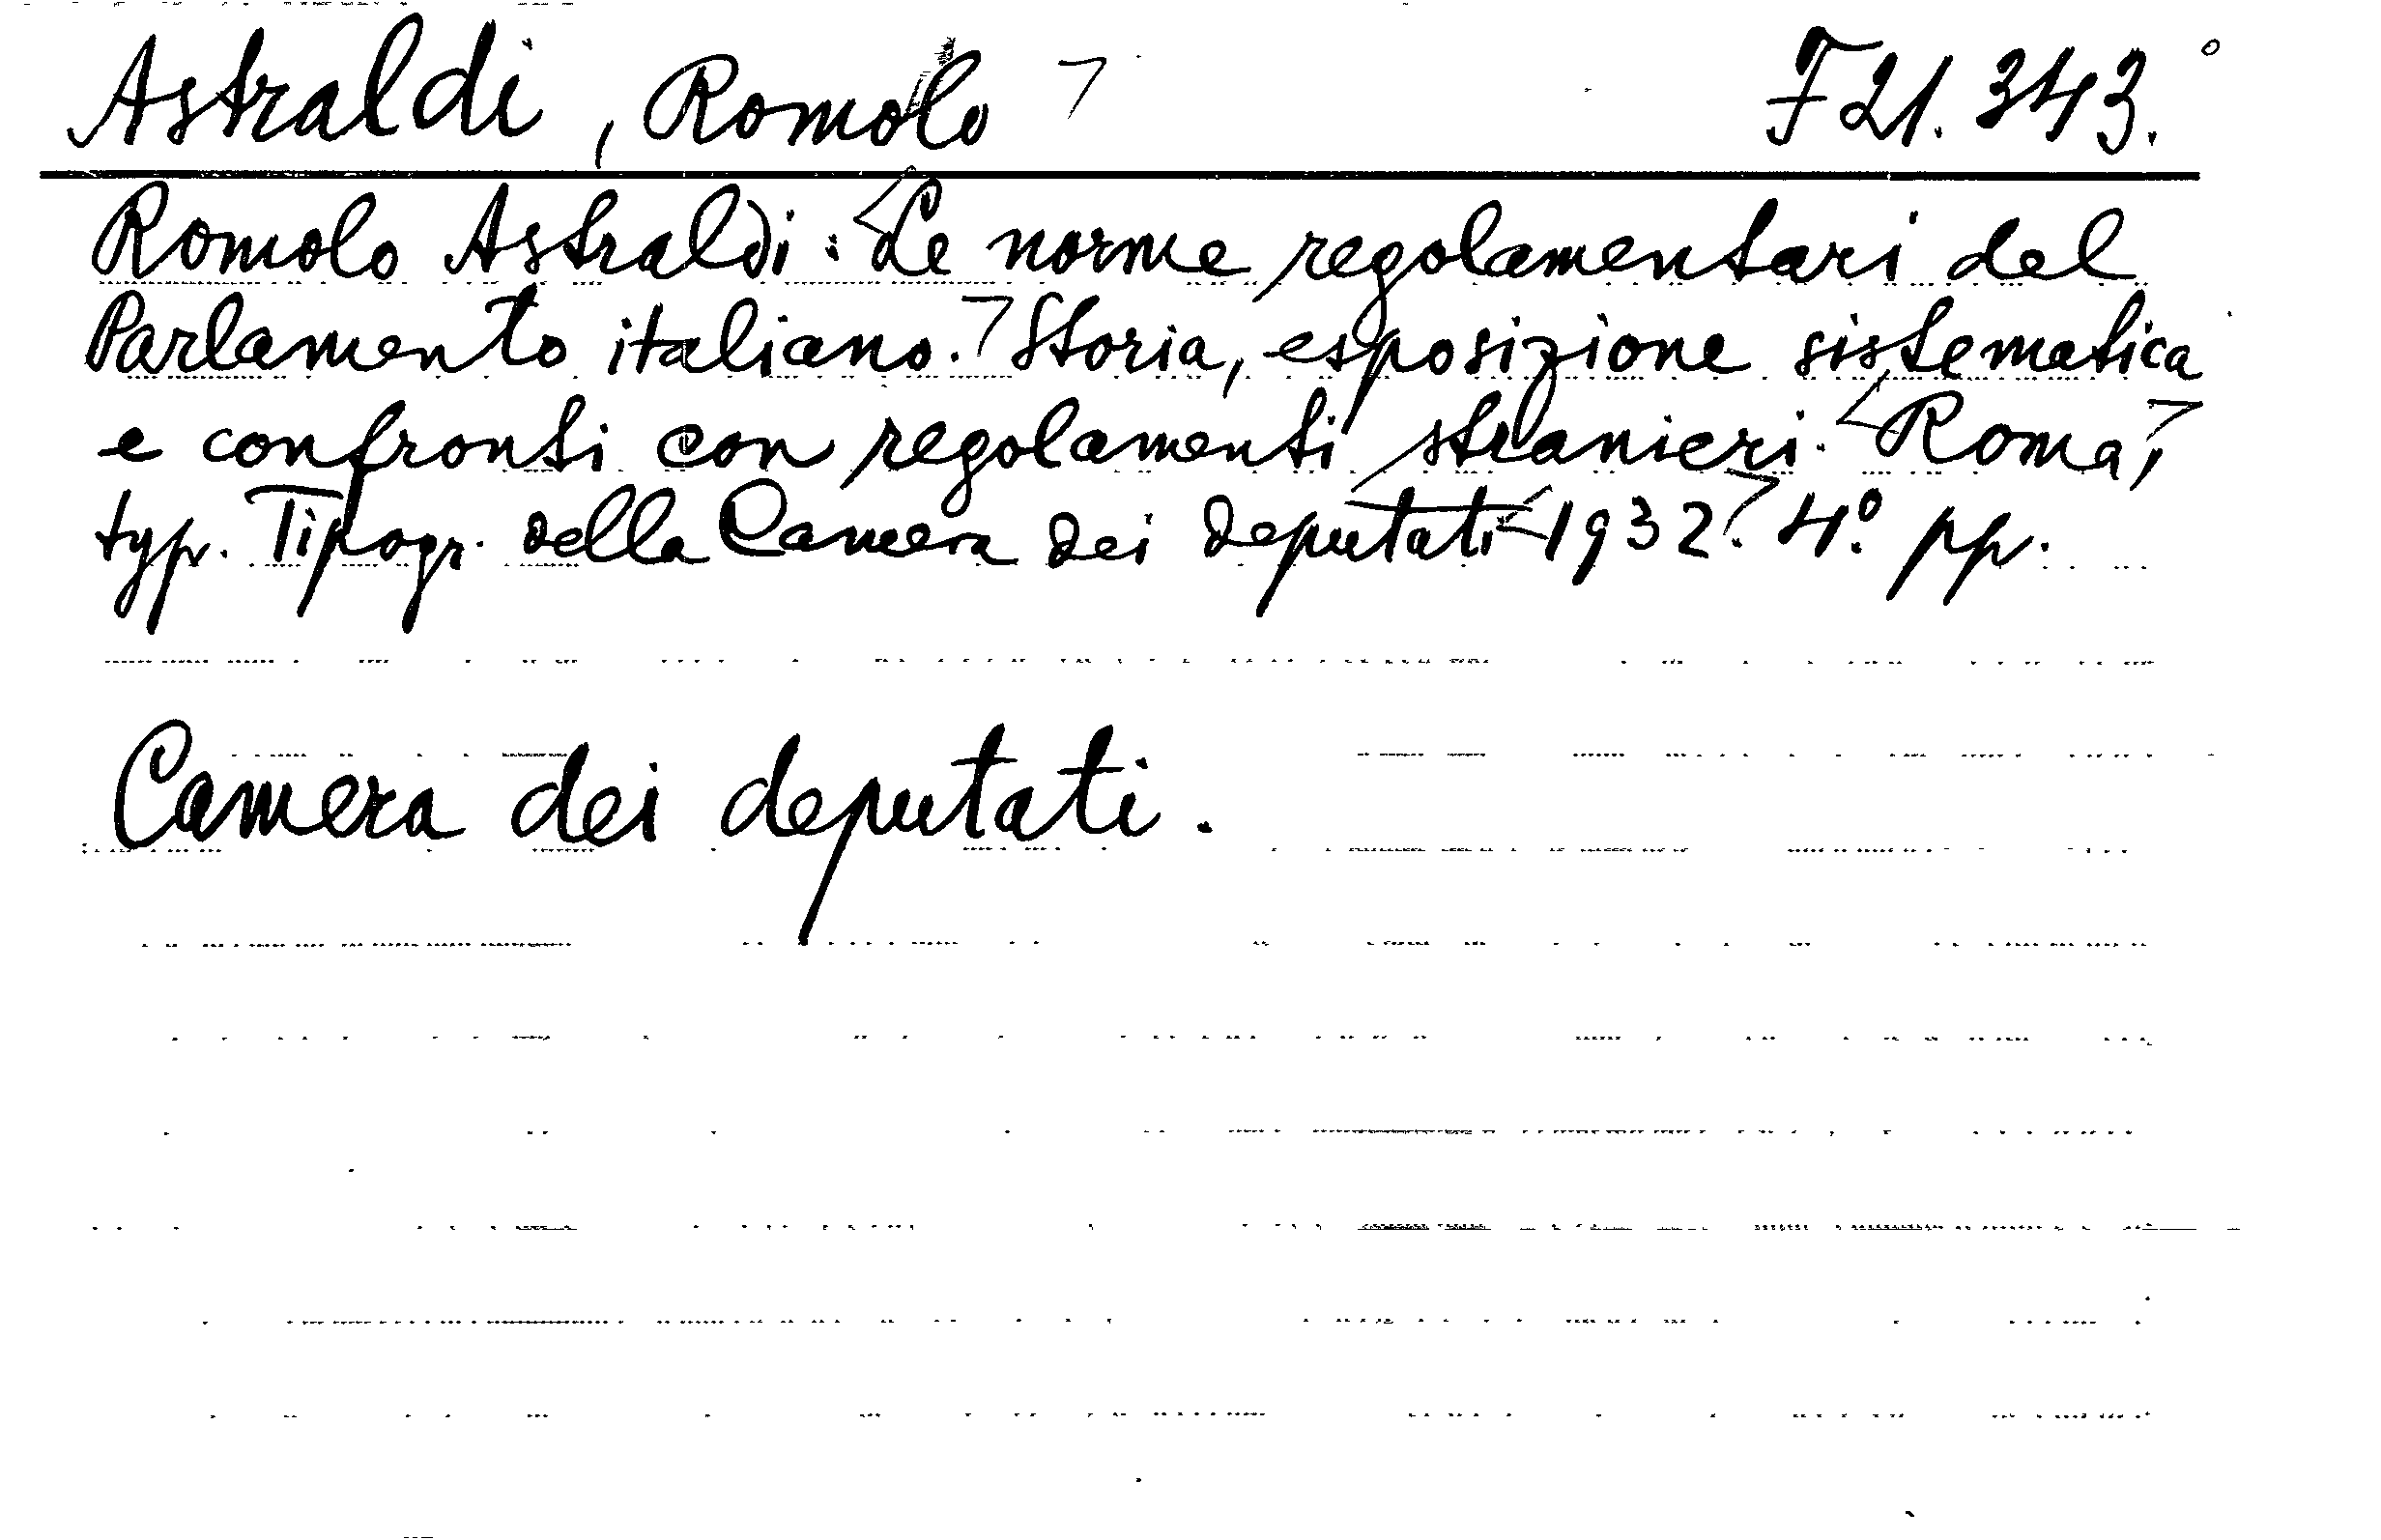 Astraldi, Romolo F21.343.
Romolo Astraldi: Le norme regolamentari del
Parlamento italiano. Storia, esposizione sistematica
e confronti con regolamenti stranieri. Roma,
typ. Tipogr. della Camera dei deputati 1932. 4º. pp.
Camera dei deputati.